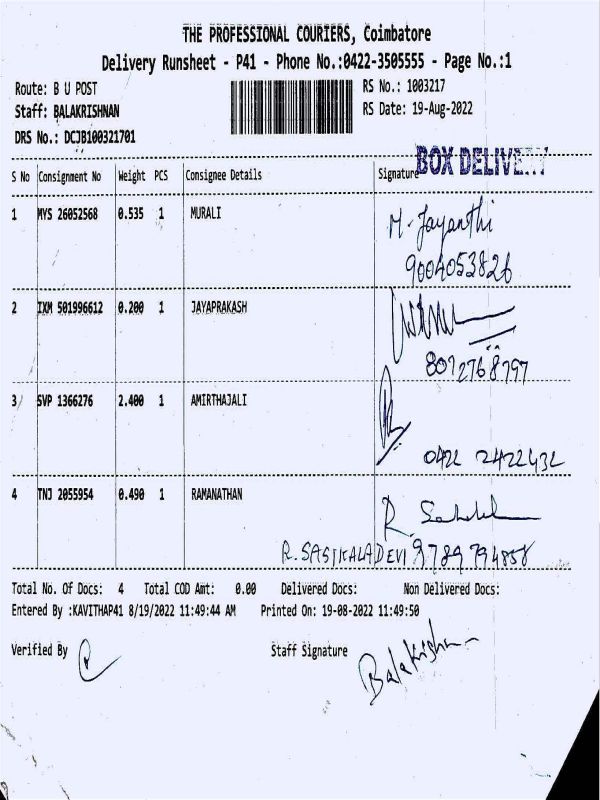 THE PROFESSIONAL COURIERS, Coimbatore
Delivery Runsheet - P41 - Phone No.:0422-3505555 - Page No.:1
Route: B U POST RS No.: 1003217
Staff: BALAKRISHNAN RS Date: 19-Aug-2022
DRS No.: DCJB100321701
BOX DELIVERY
S No Consignment No Weight PCS Consignee Details Signature
1 MYS 26052568 0.535 1 MURALI M. Jayanthi
9004053826
2 IXM 501996612 0.200 1 JAYAPRAKASH
8012768797
3 SVP 1366276 2.400 1 AMIRTHAJALI
0422 2422432
4 TNJ 2055954 0.490 1 RAMANATHAN
R. SASIKALADEVI 9789794858
Total No. Of Docs: 4 Total COD Amt: 0.00 Delivered Docs: Non Delivered Docs:
Entered By :KAVITHAP41 8/19/2022 11:49:44 AM Printed On: 19-08-2022 11:49:50
Verified By Staff Signature Balakrishnan